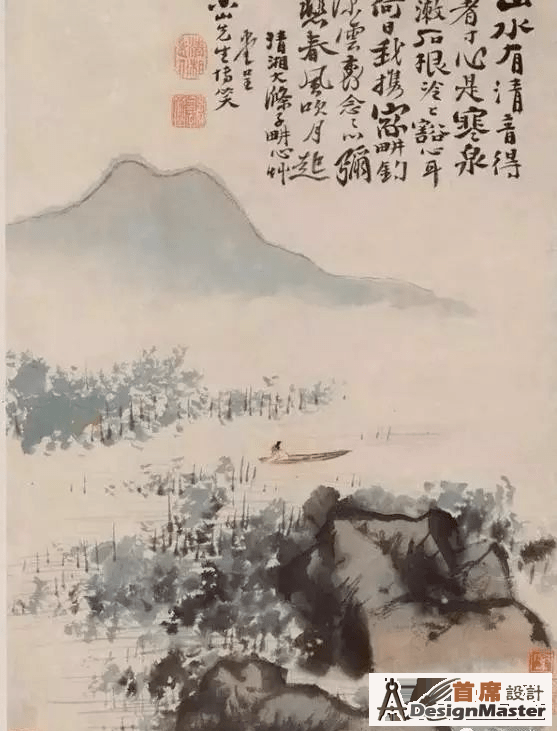 山水有清音得
者寸心是寒泉
漱石根冷々豁心耳
何日我攜家畊釣
深雲裏念之以彌
春風吹月起
清湘大滌子畊心艸
堂呈
山先生博笑
首席設計
DesignMaster